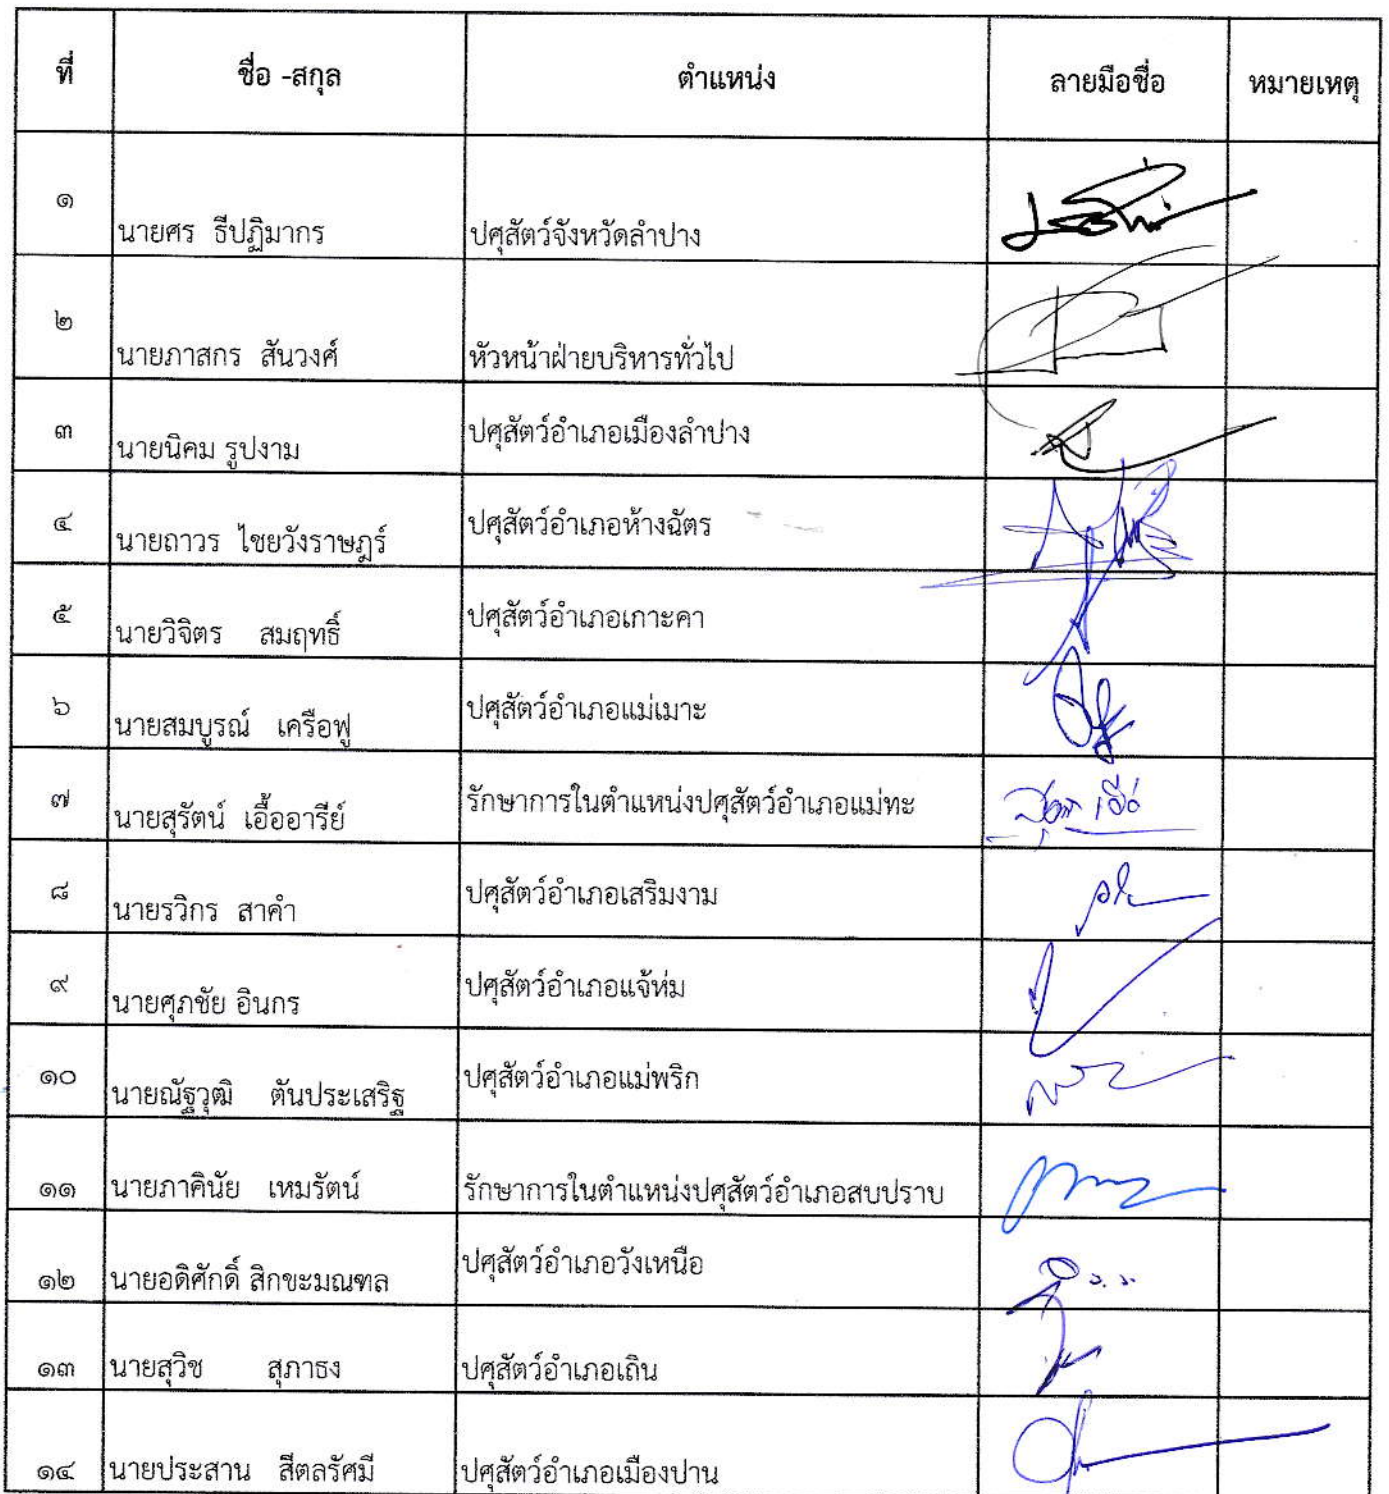 ที่ ชื่อ -สกุล ตำแหน่ง ลายมือชื่อ หมายเหตุ
๑ นายศร ธีปฏิมากร ปศุสัตว์จังหวัดลำปาง
๒ นายภาสกร สันวงศ์ หัวหน้าฝ่ายบริหารทั่วไป
๓ นายนิคม รูปงาม ปศุสัตว์อำเภอเมืองลำปาง
๔ นายถาวร ไชยวังราษฎร์ ปศุสัตว์อำเภอห้างฉัตร
๕ นายวิจิตร สมฤทธิ์ ปศุสัตว์อำเภอเกาะคา
๖ นายสมบูรณ์ เครือฟู ปศุสัตว์อำเภอแม่เมาะ
๗ นายสุรัตน์ เอื้ออารีย์ รักษาการในตำแหน่งปศุสัตว์อำเภอแม่ทะ
๘ นายรวิกร สาคำ ปศุสัตว์อำเภอเสริมงาม
๙ นายศุภชัย อินกร ปศุสัตว์อำเภอแจ้ห่ม
๑๐ นายณัฐวุฒิ ตันประเสริฐ ปศุสัตว์อำเภอแม่พริก
๑๑ นายภาคินัย เหมรัตน์ รักษาการในตำแหน่งปศุสัตว์อำเภอสบปราบ
๑๒ นายอดิศักดิ์ สิกขะมณฑล ปศุสัตว์อำเภอวังเหนือ
๑๓ นายสุวิช สุภาธง ปศุสัตว์อำเภอเถิน
๑๔ นายประสาน สีตลรัศมี ปศุสัตว์อำเภอเมืองปาน